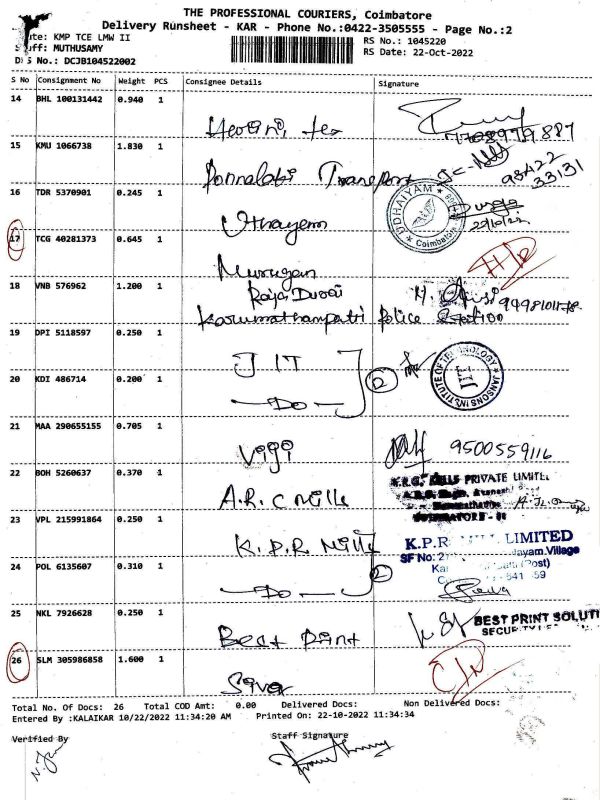 THE PROFESSIONAL COURIERS, Coimbatore
Delivery Runsheet - KAR - Phone No.:0422-3505555 - Page No.:2
KMP TCE LMW II
RS No.: 1045220
MUTHUSAMY
RS Date: 22-Oct-2022
DRS No.: DCJB104522002
S No Consignment No Weight PCS Consignee Details Signature
14 BHL 100131442 0.940 1
15 KMU 1066738 1.830 1
Ponnalabi Transport
98422
33131
16 TDR 5370901 0.245 1
Uthayem
UDHAIYAM
Coimbatore
17 TCG 40281373 0.645 1
Murugan
18 VNB 576962 1.200 1
Raja Durai
Karumathampatti Police Station
19 DPI 5118597 0.250 1
J I T
JANSONS INSTITUTE OF TECHNOLOGY
JIT
20 KDI 486714 0.200 1
-Do-
2
21 MAA 290655155 0.705 1
Viji
9500559116
22 BOH 5260637 0.370 1
A.R.C Mills
MILLS PRIVATE LIMITED
23 VPL 215991864 0.250 1
K.P.R Mills
K.P.R MILL LIMITED
SF No:
Village
(Post)
24 POL 6135607 0.310 1
-Do-
2
25 NKL 7926628 0.250 1
Best Print
BEST PRINT SOLUTI
26 SLM 305986858 1.600 1
Siva
Total No. Of Docs: 26 Total COD Amt: 0.00 Delivered Docs: Non Delivered Docs:
Entered By :KALAIKAR 10/22/2022 11:34:20 AM Printed On: 22-10-2022 11:34:34
Verified By Staff Signature